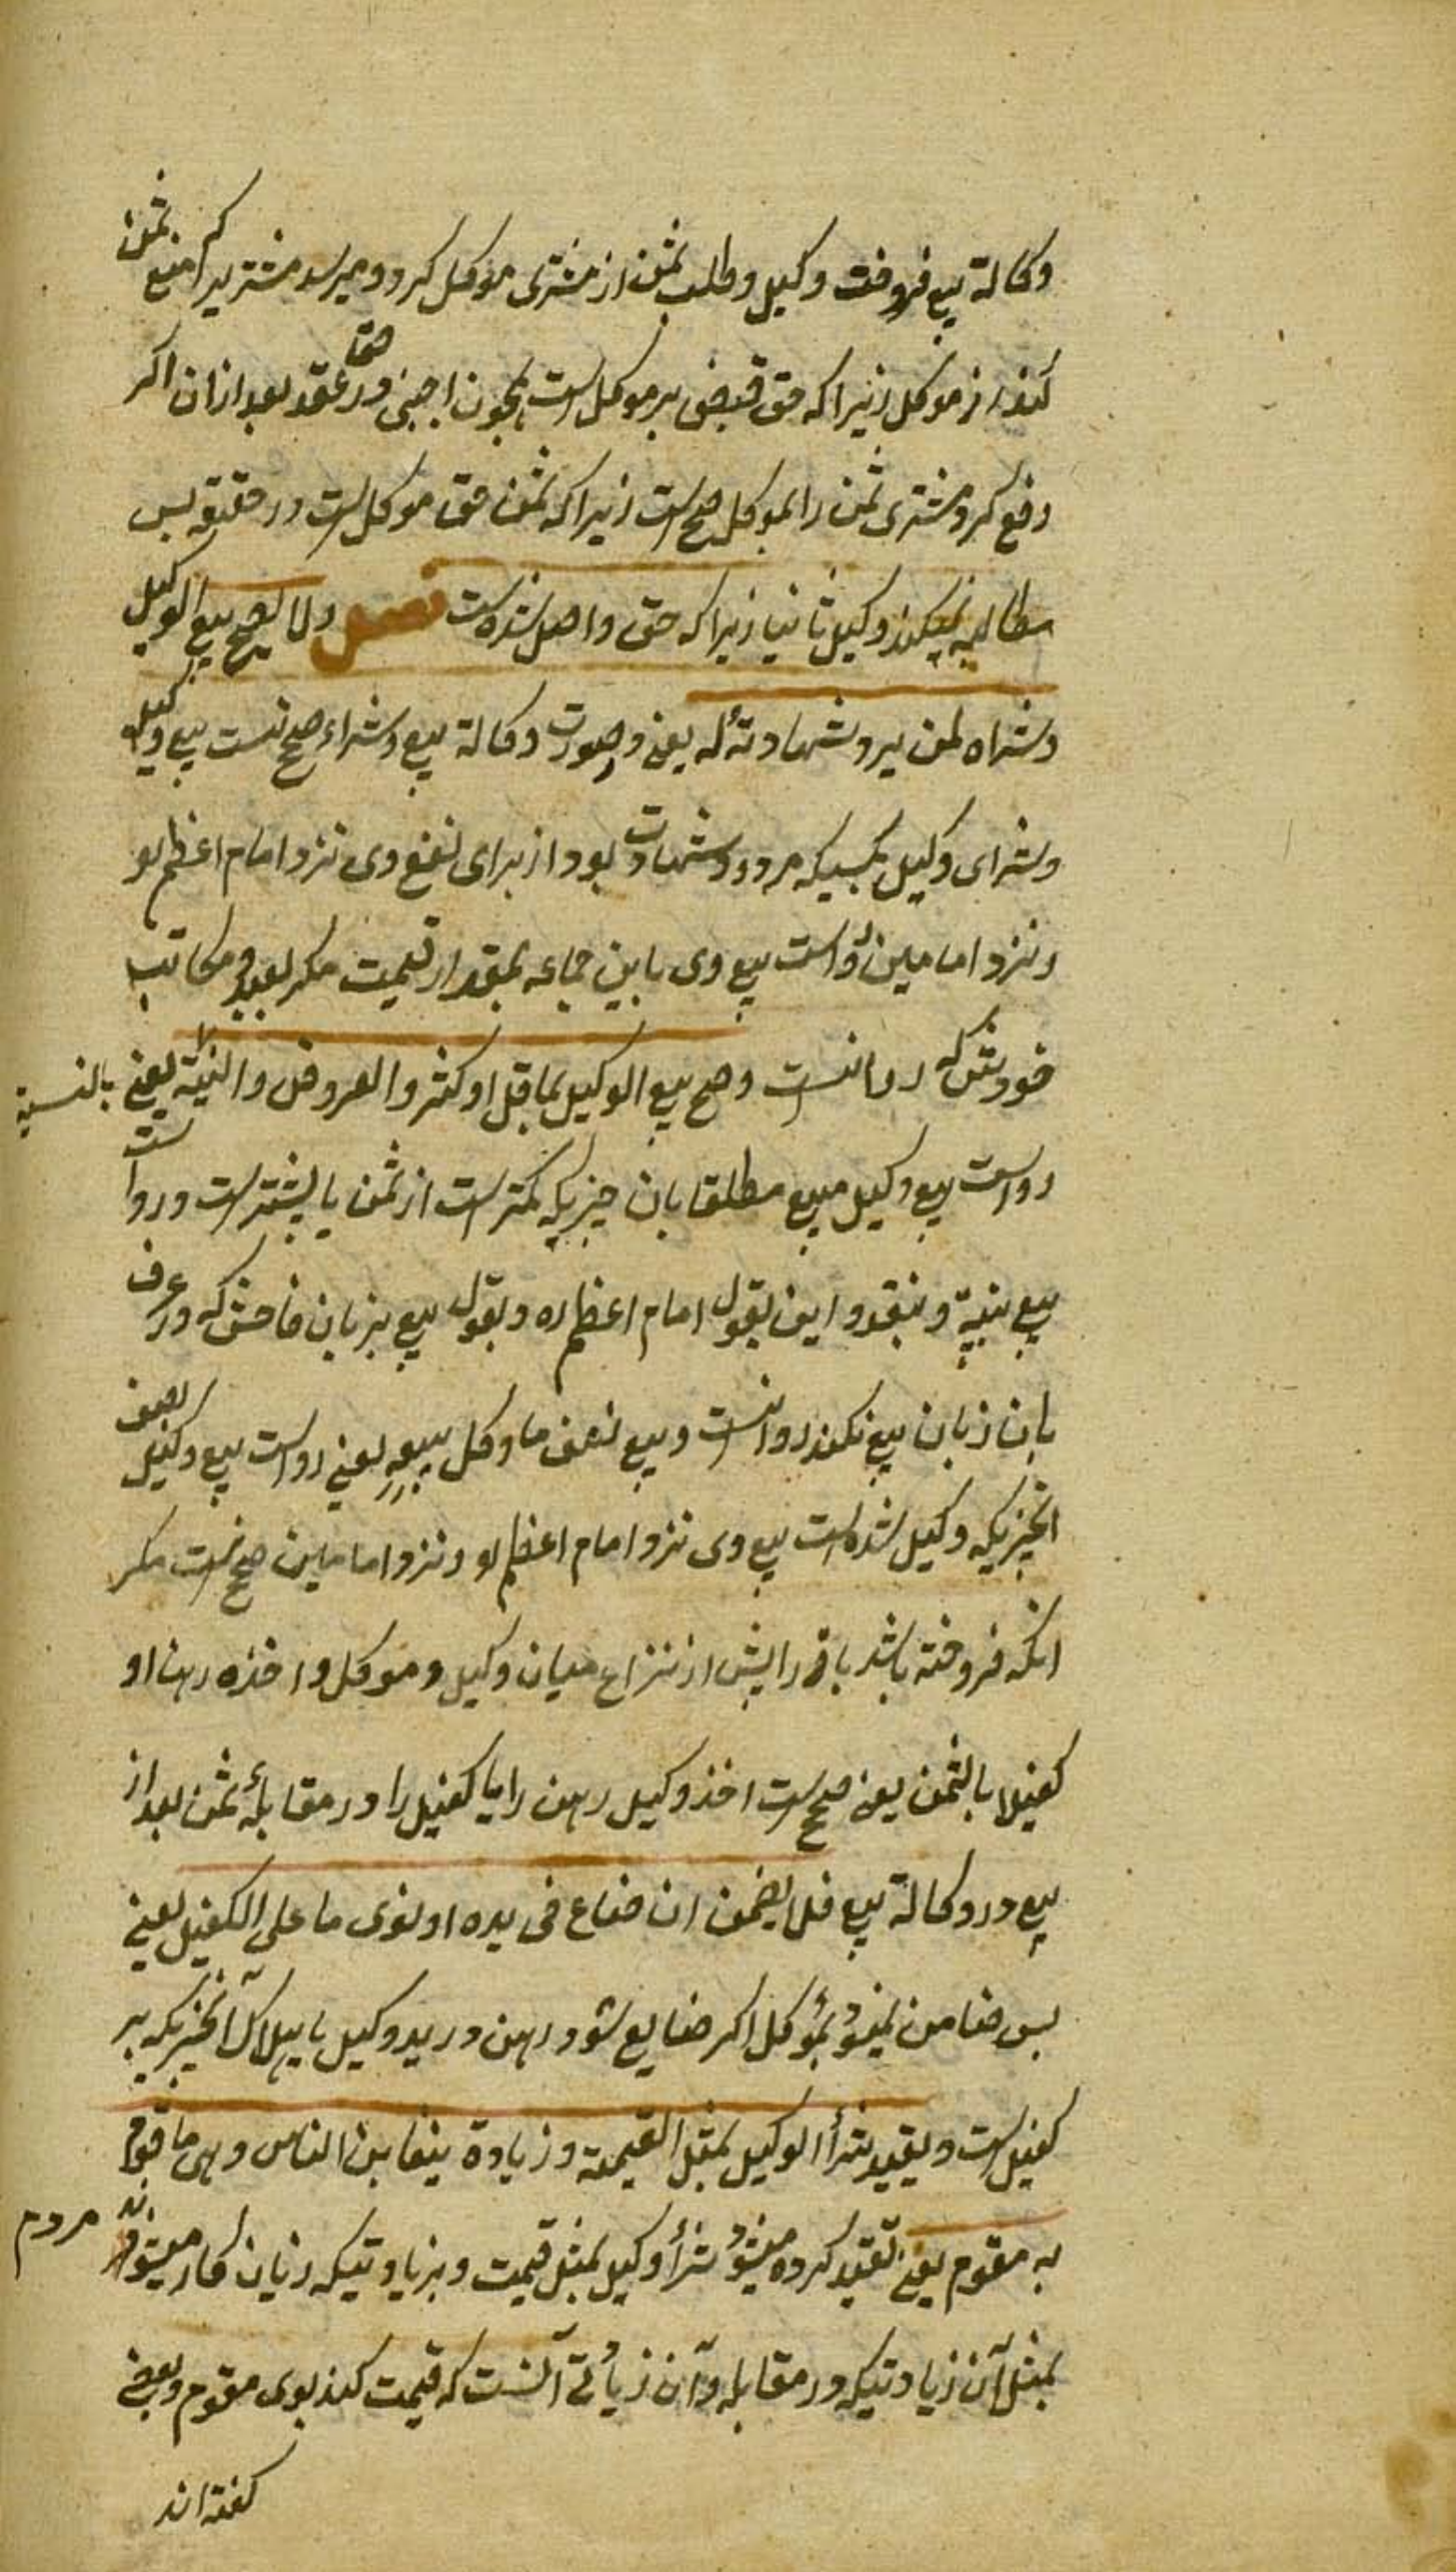 وکالة بیع فروخت وکیل و طلب ثمن از مشتری موکل کرد و میرسد مشتریرا که منع ثمن
کند از موکل زیرا که حق قبض بر موکل است همچون اجنبی در حق عقد بعد ازان اکر
دفع کرد مشتری ثمن را بموکل صح است زیرا که ثمن حق موکل است در حقیقة بس
مطالبه نمیکند وکیل ثانیا زیرا که حق واصل شده است فصل ولا یصح بیع الوکیل
وشراه لمن یرد شهادته له یعنی در صورت وکالة بیع وشراء صح نیست بیع وکیل
وشرای وکیل بکسیکه مردود شهادت بود از برای نفع وی نزد امام اعظم لو
ونزد امامین رواست بیع وی باین جماعه بمقدار قیمت مکر بعبد و مکاتب
خودش که روا نیست وصح بیع الوکیل بما قل او کثر والعروض والنسیة یعنی بالنسیة
رواست بیع وکیل مبیع مطلقا بان چیزیکه کمتر است از ثمن یا بیشتر است و رواست
بیع بنسیة و بنقد و این بقول امام اعظم ره و بقول بیع بزیان فاحش که در عرف
بان زیان بیع نکنند روا نیست وبیع نصف ما وکل ببیعه یعنی رواست بیع وکیل نصف
انچیزیکه وکیل شده است بیع وی نزد امام اعظم لو ونزد امامین صح نیست مکر
انکه فروخته باشد باقی را پیش از نزاع میان وکیل و موکل واخذه رهنا او
کفیلا بالثمن یعنی صح است اخذ وکیل رهن را یا کفیل را در مقابلهٔ ثمن بعد از
بیع در وکالة بیع فلا یضمن ان ضاع فی یده او توی ما علی الکفیل یعنی
بس ضامن نمیشود بموکل اکر ضایع شود رهن در ید وکیل یا هلاک آنچیزیکه بر
کفیل است ویقید شرأ الوکیل بمثل القیمة وزیادة یتغابن الناس وهی ما قوم
به مقوم یعنی تقید کرده میشود شرأ وکیل بمثل قیمت و بزیادتیکه زیان کار میشوند مردم
بمثل آن زیادتیکه در مقابله و آن زیادتی آنست که قیمت کند بوی مقوم و بعضی
کفته اند